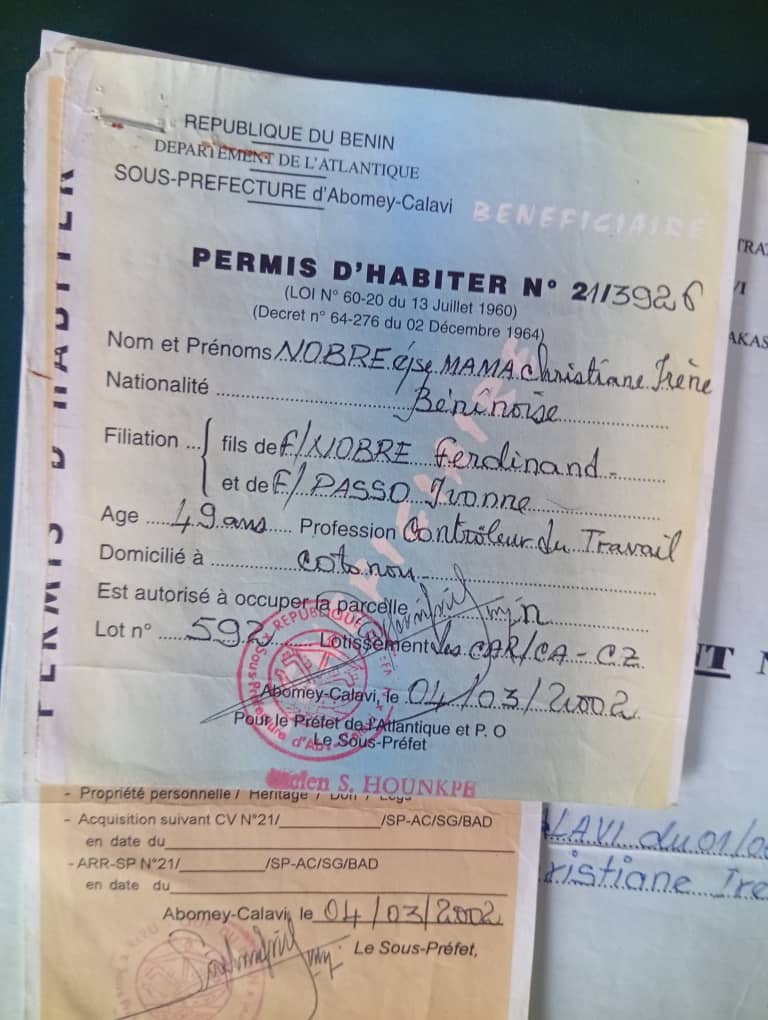 REPUBLIQUE DU BENIN
DEPARTEMENT DE L'ATLANTIQUE
SOUS-PREFECTURE d'Abomey-Calavi
BENEFICIAIRE
PERMIS D'HABITER N° 21/3926
(LOI N° 60-20 du 13 Juillet 1960)
(Decret n° 64-276 du 02 Décembre 1964)
Nom et Prénoms NOBRE épse MAMA Christiane Irène
Nationalité Béninoise
Filiation ... fils de F/NOBRE Ferdinand
et de F/ PASSO Ivonne
Age 49 ans Profession Contrôleur du Travail
Domicilié à cotonou
Est autorisé à occuper la parcelle
Lot n° 592 Lotissement les CAR/CA-CZ
Abomey-Calavi, le 04/03/2002
Pour le Préfet de l'Atlantique et P. O
Le Sous-Préfet
S. HOUNKPE
PERMIS D'HABITER
- Propriété personnelle / Héritage / Don / Legs
- Acquisition suivant CV N°21/ /SP-AC/SG/BAD
en date du
- ARR-SP N°21/ /SP-AC/SG/BAD
en date du
Abomey-Calavi, le 04/03/2002
Le Sous-Préfet,
LAVI du 01/0
ristiane Ire